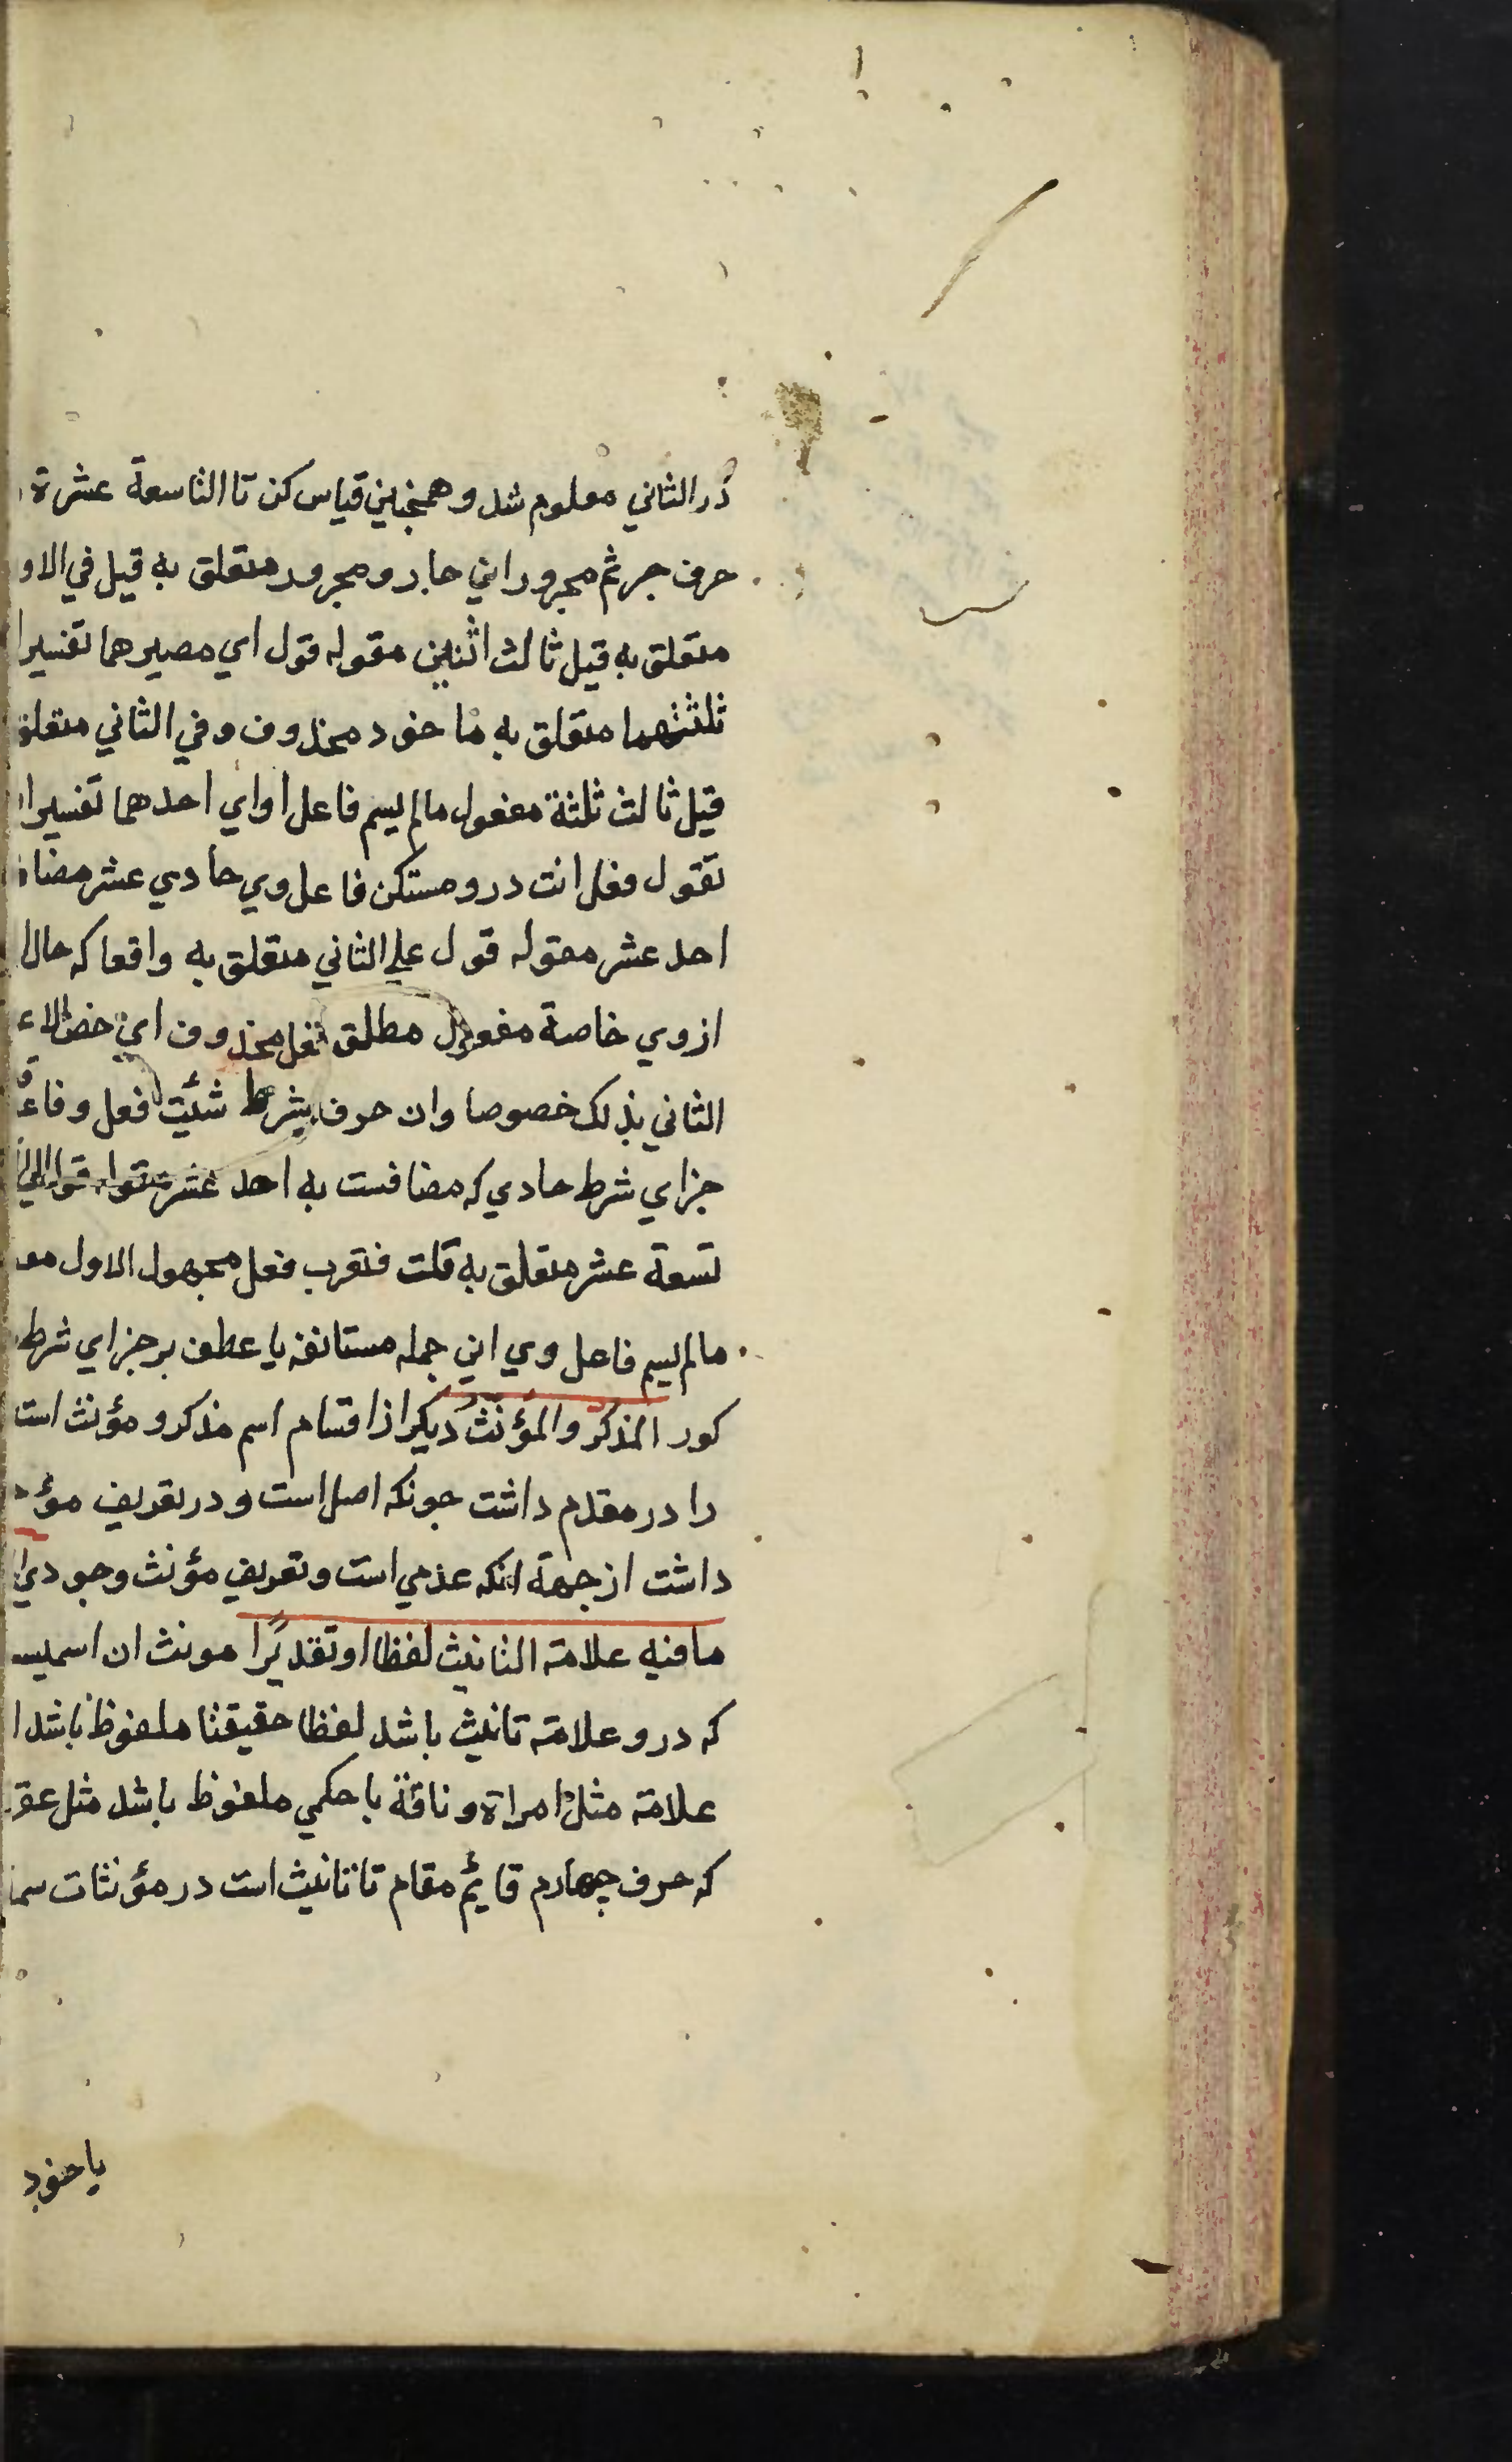 در الثاني معلوم شد و همچنين قياس كن تا التاسعة عشرة
حرف جر ثم مجرور اين جار و مجرور متعلق به قيل في الاو
متعلق به قيل ثالث اثنين مقوله قول اي مصيرهما تفسير
ثلثتهما متعلق به ماخود محذوف و في الثاني متعلق
قيل ثالث ثلثة مفعول مالم يسم فاعل او اي احدهما تفسير
تقول فعل انت درو مستكن فاعل وي حادي عشر مضا
احد عشر مقوله قول علي الثاني متعلق به واقعا كه حال
از وي خاصة مفعول مطلق فعل محذوف اي خص الا
الثاني بذلك خصوصا وان حرف شرط شئت فعل و فاع
جزاي شرط حادي كه مضافست به احد عشر مقوله قول الي
تسعة عشر متعلق به قلت فتعرب فعل مجهول الاول مف
مالم يسم فاعل وي اين جمله مستانفه يا عطف بر جزاي شرط
كور المذكر والمؤنث ديكر از اقسام اسم مذكر و مؤنث است
را در مقدم داشت جونكه اصل است و در تعريف مؤ
داشت از جهة انكه عدمي است و تعريف مؤنث وجودي
مافيه علامة التانيث لفظا او تقديرا مونث ان اسميـ
كه درو علامة تانيث باشد لفظا حقيقتا ملفوظ باشد ا
علامة مثل امراة و ناقة يا حكمي ملفوظ باشد مثل عقر
كه حرف چهارم قايم مقام تا تانيث است در مؤنثات سما
ياخود